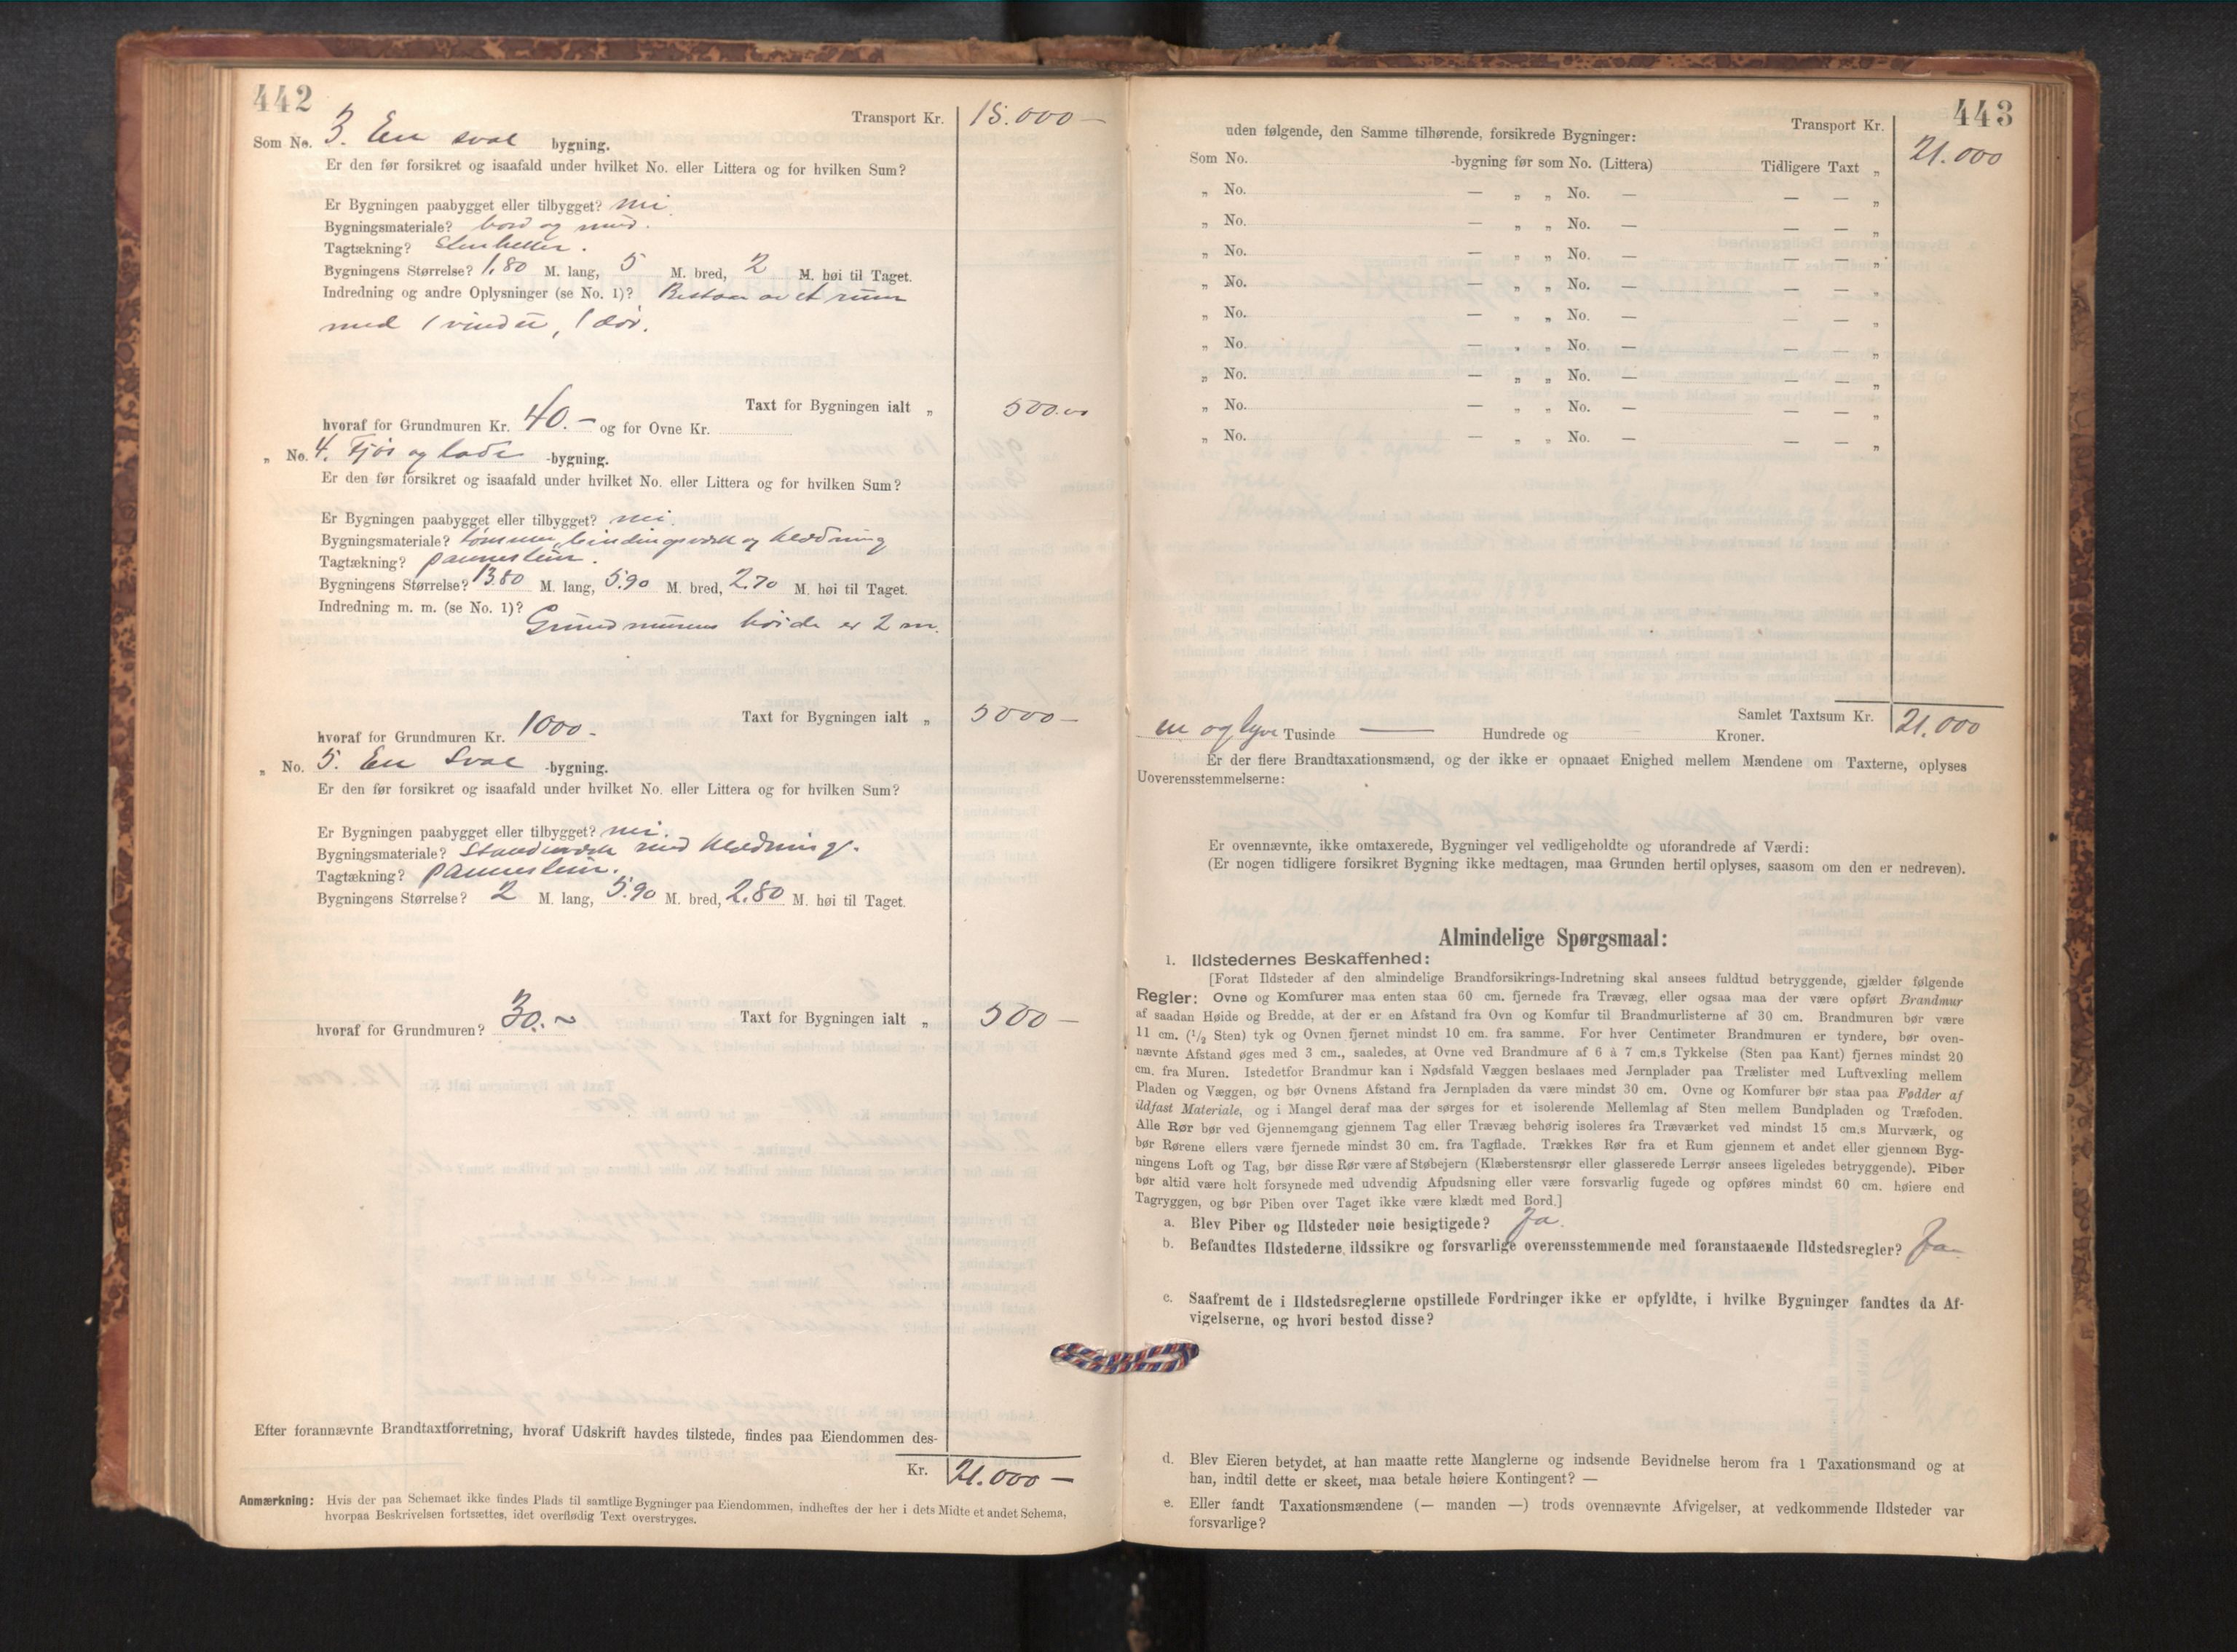 442
Transport Kr. 15.000 —
Som No. 3. En sval bygning.
Er den før forsikret og isaafald under hvilket No. eller Littera og for hvilken Sum?
Er Bygningen paabygget eller tilbygget? nei
Bygningsmateriale? bord og mur.
Tagtækning? Stenheller.
Bygningens Størrelse? 1,80 M. lang, 5 M. bred, 2 M. høi til Taget.
Indredning og andre Oplysninger (se No. 1)? Bestaar av et rum
med 1 vindu, 1 dør.
Taxt for Bygningen ialt „ 500.00
hvoraf for Grundmuren Kr. 40.— og for Ovne Kr.
„ No. 4. Fjös og lade -bygning.
Er den før forsikret og isaafald under hvilket No. eller Littera og for hvilken Sum?
Er Bygningen paabygget eller tilbygget? nei.
Bygningsmateriale? tømmer, bindingsverk og klædning
Tagtækning? pannestein.
Bygningens Størrelse? 13.80 M. lang, 5.90 M. bred, 2.70 M. høi til Taget.
Indredning m. m. (se No. 1)?
Grundmurens høide er 2 m.
Taxt for Bygningen ialt „ 5000 —
hvoraf for Grundmuren Kr. 1000 -
„ No. 5. En Sval -bygning.
Er den før forsikret og isaafald under hvilket No. eller Littera og for hvilken Sum?
Er Bygningen paabygget eller tilbygget? nei.
Bygningsmateriale? Standverk med klædning.
Tagtækning? Pannestein.
Bygningens Størrelse? 2 M. lang, 5.90 M. bred, 2.80 M. høi til Taget.
Taxt for Bygningen ialt „ 500 —
hvoraf for Grundmuren? 30.—
Efter forannævnte Brandtaxtforretning, hvoraf Udskrift havdes tilstede, findes paa Eiendommen des-
Kr. 21.000 —
Anmærkning: Hvis der paa Schemaet ikke findes Plads til samtlige Bygninger paa Eiendommen, indheftes der her i dets Midte et andet Schema,
hvorpaa Beskrivelsen fortsættes, idet overflødig Text overstryges.
443
Transport Kr. 21.000
uden følgende, den Samme tilhørende, forsikrede Bygninger:
Som No. -bygning før som No. (Littera) Tidligere Taxt „
„ No. — „ „ No. — — — „
„ No. — „ „ No. — — — „
„ No. — „ „ No. — — — „
„ No. — „ „ No. — — — „
„ No. — „ „ No. — — — „
„ No. — „ „ No. — — — „
„ No. — „ „ No. — — — „
„ No. — „ „ No. — — — „
„ No. — „ „ No. — — — „
Samlet Taxtsum Kr. 21.000
en og tyve Tusinde — Hundrede og Kroner.
Er der flere Brandtaxationsmænd, og der ikke er opnaaet Enighed mellem Mændene om Taxterne, oplyses
Uoverensstemmelserne:
Er ovennævnte, ikke omtaxerede, Bygninger vel vedligeholdte og uforandrede af Værdi:
(Er nogen tidligere forsikret Bygning ikke medtagen, maa Grunden hertil oplyses, saasom om den er nedreven).
Almindelige Spørgsmaal:
1. Ildstedernes Beskaffenhed:
[Forat Ildsteder af den almindelige Brandforsikrings-Indretning skal ansees fuldtud betryggende, gjælder følgende
Regler: Ovne og Komfurer maa enten staa 60 cm. fjernede fra Trævæg, eller ogsaa maa der være opført Brandmur
af saadan Høide og Bredde, at der er en Afstand fra Ovn og Komfur til Brandmurlisterne af 30 cm. Brandmuren bør være
11 cm. (1/2 Sten) tyk og Ovnen fjernet mindst 10 cm. fra samme. For hver Centimeter Brandmuren er tyndere, bør oven-
nævnte Afstand øges med 3 cm., saaledes, at Ovne ved Brandmure af 6 à 7 cm.s Tykkelse (Sten paa Kant) fjernes mindst 20
cm. fra Muren. Istedetfor Brandmur kan i Nødsfald Væggen beslaaes med Jernplader paa Trælister med Luftvexling mellem
Pladen og Væggen, og bør Ovnens Afstand fra Jernpladen da være mindst 30 cm. Ovne og Komfurer bør staa paa Fødder af
ildfast Materiale, og i Mangel deraf maa der sørges for et isolerende Mellemlag af Sten mellem Bundpladen og Træfoden.
Alle Rør bør ved Gjennemgang gjennem Tag eller Trævæg behørig isoleres fra Træværket ved mindst 15 cm.s Murværk, og
bør Rørene ellers være fjernede mindst 30 cm. fra Tagflade. Trækkes Rør fra et Rum gjennem et andet eller gjennem Byg-
ningens Loft og Tag, bør disse Rør være af Støbejern (Klæberstensrør eller glasserede Lerrør ansees ligeledes betryggende). Piber
bør altid være helt forsynede med udvendig Afpudsning eller være forsvarlig fugede og opføres mindst 60 cm. høiere end
Tagryggen, og bør Piben over Taget ikke være klædt med Bord.]
a. Blev Piber og Ildsteder nøie besigtigede? Ja.
b. Befandtes Ildstederne ildssikre og forsvarlige overensstemmende med foranstaaende Ildstedsregler? Ja
c. Saafremt de i Ildstedsreglerne opstillede Fordringer ikke er opfyldte, i hvilke Bygninger fandtes da Af-
vigelserne, og hvori bestod disse?
d. Blev Eieren betydet, at han maatte rette Manglerne og indsende Bevidnelse herom fra 1 Taxationsmand og at
han, indtil dette er skeet, maa betale høiere Kontingent? —
e. Eller fandt Taxationsmændene (— manden —) trods ovennævnte Afvigelser, at vedkommende Ildsteder var
forsvarlige?